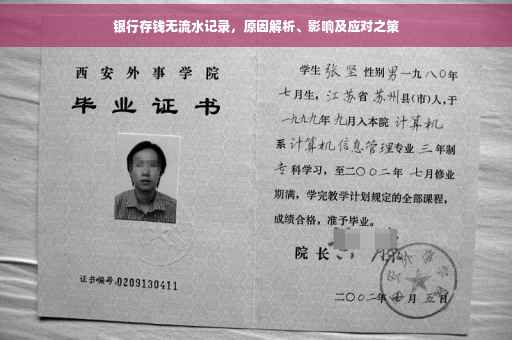 银行存钱无流水记录，原因解析、影响及应对之策
西安外事学院
毕业证书
证书编号:0209130411
学生 张坚 性别 男 一九八〇年
七月生，江苏省 苏州 县(市)人,于
一九九九年 九月入本院 计算机
系 计算机信息管理 专业 三 年制
专 科学习，至二〇〇二年 七月修业
期满，学完教学计划规定的全部课程，
成绩合格，准予毕业。
院长
二〇〇二年 月 五日